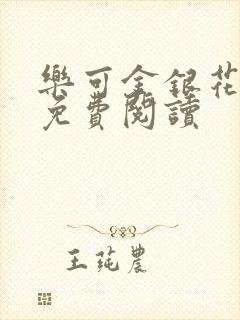 樂可金銀花
免費閱讀
王莼農